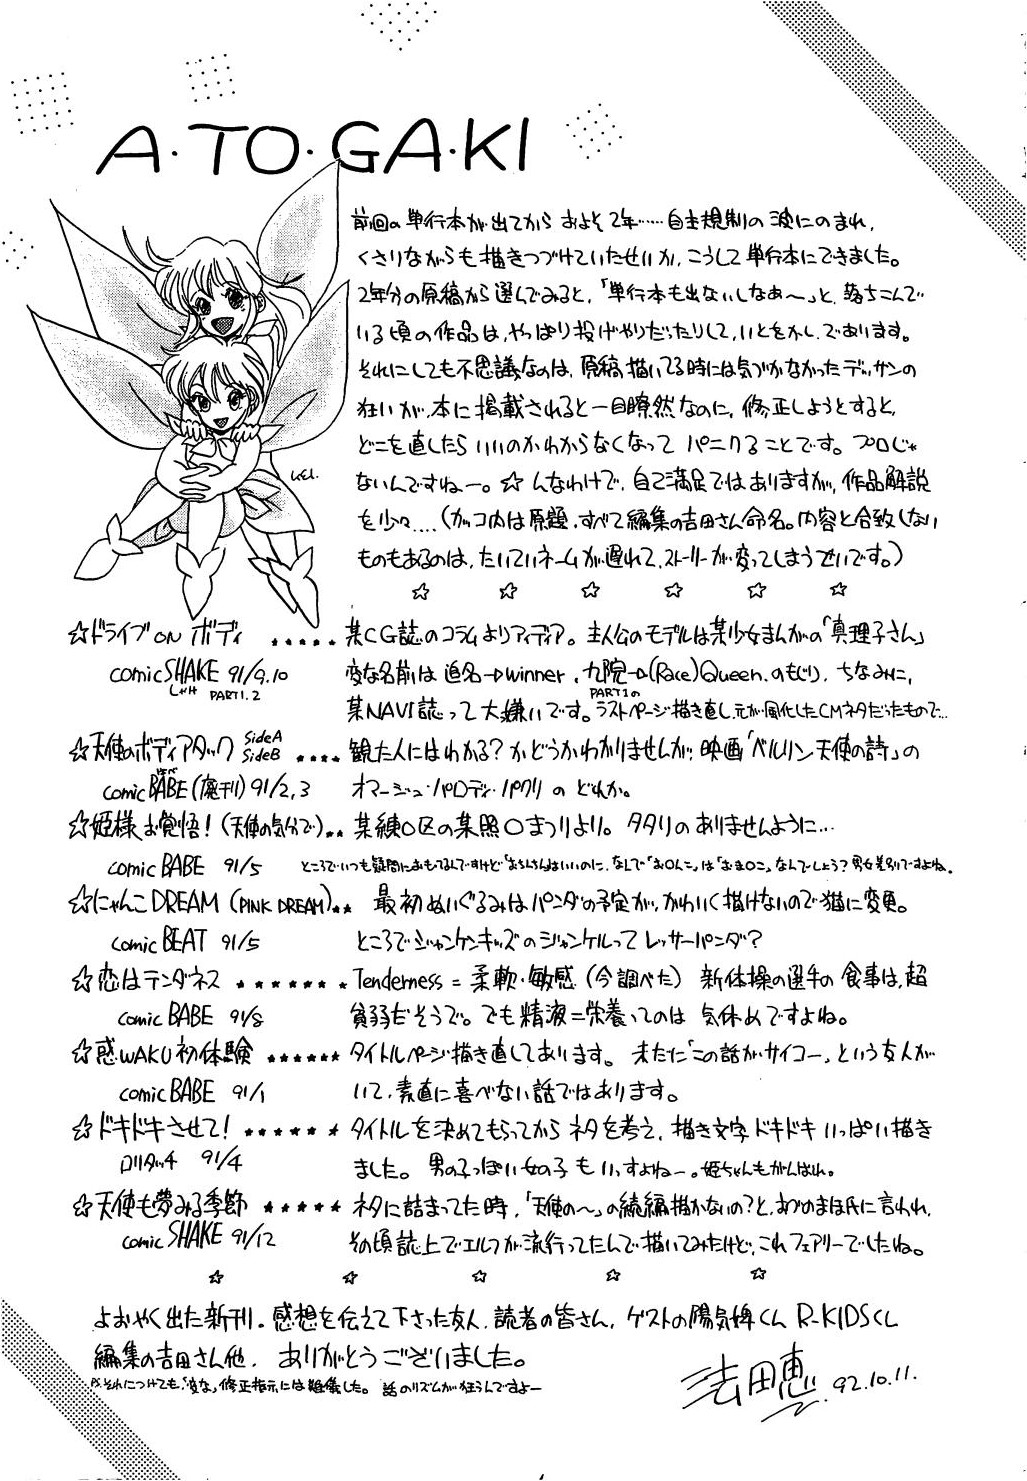 A・TO・GA・KI
前回の単行本が出てから およそ2年……自主規制の波にのまれ、
くさりながらも描きつづけていたせいか、こうして単行本にできました。
2年分の原稿から選んでみると、「単行本も出ないしなあ〜」と、落ちこんで
いる頃の作品は、やっぱり投げやりだったりして、いとをかし、であります。
それにしても不思議なのは、原稿描いてる時には気づかなかったデッサンの
狂いが、本に掲載されると一目瞭然なのに、修正しようとすると、
どこを直したらいいのかわからなくなって パニクることです。プロじゃ
ないんですねー。☆んなわけで、自己満足ではありますが、作品解説
を少々…(カッコ内は原題、すべて編集の吉田さん命名。内容と合致しない
ものもあるのは、たいていネームが遅れて、ストーリーが変ってしまうせいです。)
Kei.
☆ ☆ ☆ ☆ ☆ ☆
☆ドライブON ボディ ★★★★★ 某CG誌のコラムよりアイディア。主人公のモデルは某少女まんがの「真理子さん」
comic SHAKE 91/9.10 変な名前は 追名→winner、九院→(Race)Queen、のもじり、ちなみに、
PART1.2 某NAVI誌って大嫌いです。PART1のラストページ描き直し、元が風化したCMネタだったもので…
☆天使のボディアタック SideA SideB ★★★★ 観た人にはわかる?かどうかわかりませんが、映画「ベルリン天使の詩」の
comic BABE(廃刊) 91/2,3 オマージュ・パロディ・パクリの どれか。
☆姫様お覚悟!(天使の気分で)★★ 某練○区の某照○まつりより。タタリのありませんように…
comic BABE 91/5 ところでいつも疑問におもてるんですけど「おちんちんはいいのに、なんで「お○んこ」は「おま○こ」なんでしょう?男女差別ですよね。
☆にゃんこDREAM (PINK DREAM)★★ 最初ぬいぐるみはパンダの予定が、かわいく描けないので猫に変更。
comic BEAT 91/5 ところでジャンケンキッズのジャンケルってレッサーパンダ?
☆恋はテンダネス ★★★★★★★ Tenderness = 柔軟・敏感(今調べた) 新体操の選手の食事は、超
comic BABE 91/8 貧弱だそうで。でも精液=栄養ってのは 気休めですよね。
☆惑WAKU初体験 ★★★★★★ タイトルページ描き直してあります。未だに「この話がサイコー」という友人が
comic BABE 91/1 いて、素直に喜べない話ではあります。
☆ドキドキさせて! ★★★★★★ タイトルを決めてもらってからネタを考え、描き文字ドキドキいっぱい描き
ロリタッチ 91/4 ました。男の子っぽい女の子もいっすよねー。姫ちゃんもがんばれ。
☆天使も夢みる季節 ★★★★★ ネタに詰まってた時、「天使の〜」の続編描かないの?と、あづめまほ氏に言われ、
comic SHAKE 91/12 その頃誌上でエルフが流行ってたんで描いてみたけど、これフェアリーでしたね。
☆ ☆ ☆ ☆ ☆
よおやく出た新刊。感想を伝えて下さった友人、読者の皆さん、ゲストの陽気婢くん R-KIDSくん
編集の吉田さん他、ありがとうございました。
それにつけても、「変な」修正指示には難儀した。話のリズムが狂うんですよー
法田恵 92.10.11.